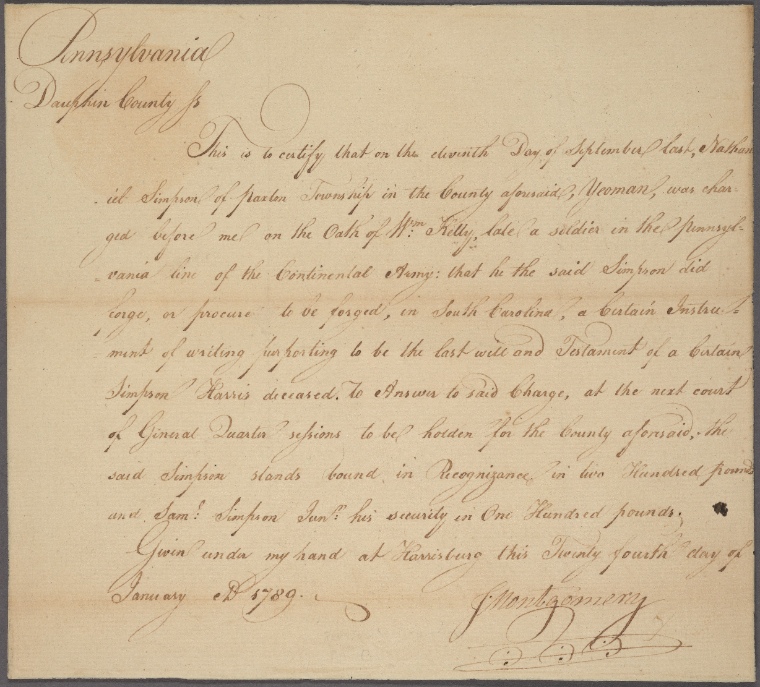 Pennsylvania
Dauphin County Ss
This is to certify that on the eleventh Day of September last, Nathan
iel Simpson of paxton Township in the County aforesaid, Yeoman, was char-
ged before me on the Oath of Wm. Kelly, late a soldier in the pennsyl-
vania line of the Continental Army: that he the said Simpson did
forge, or procure to be forged, in South Carolina, a Certain Instru-
ment of writing purporting to be the last will and Testament of a Certain
Simpson Harris deceased. To Answer to said Charge, at the next court
of General Quarter sessions to be holden for the County aforesaid, the
said Simpson stands bound in Recognizance in two Hundred pounds
and Saml. Simpson Junr. his security in One Hundred pounds.
Given under my hand at Harrisburg this Twenty fourth day of
January AD 1789.
J Montgomery